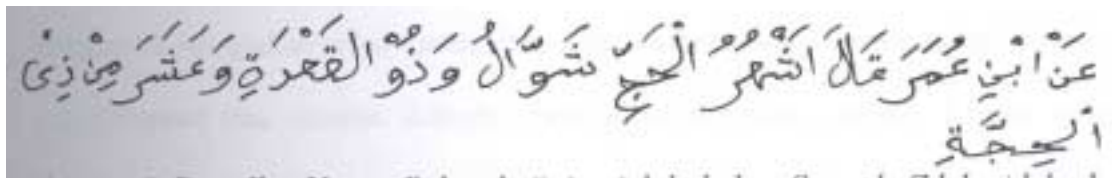 عَنْ ابْنِ عُمَرَ قَالَ اَشْهُرُ الْحَجِّ شَوَّالُ وَذُوْ الْقَعْدَةِ وَعَشَرَ مِنْ ذِىْ
الْحِجَّةِ